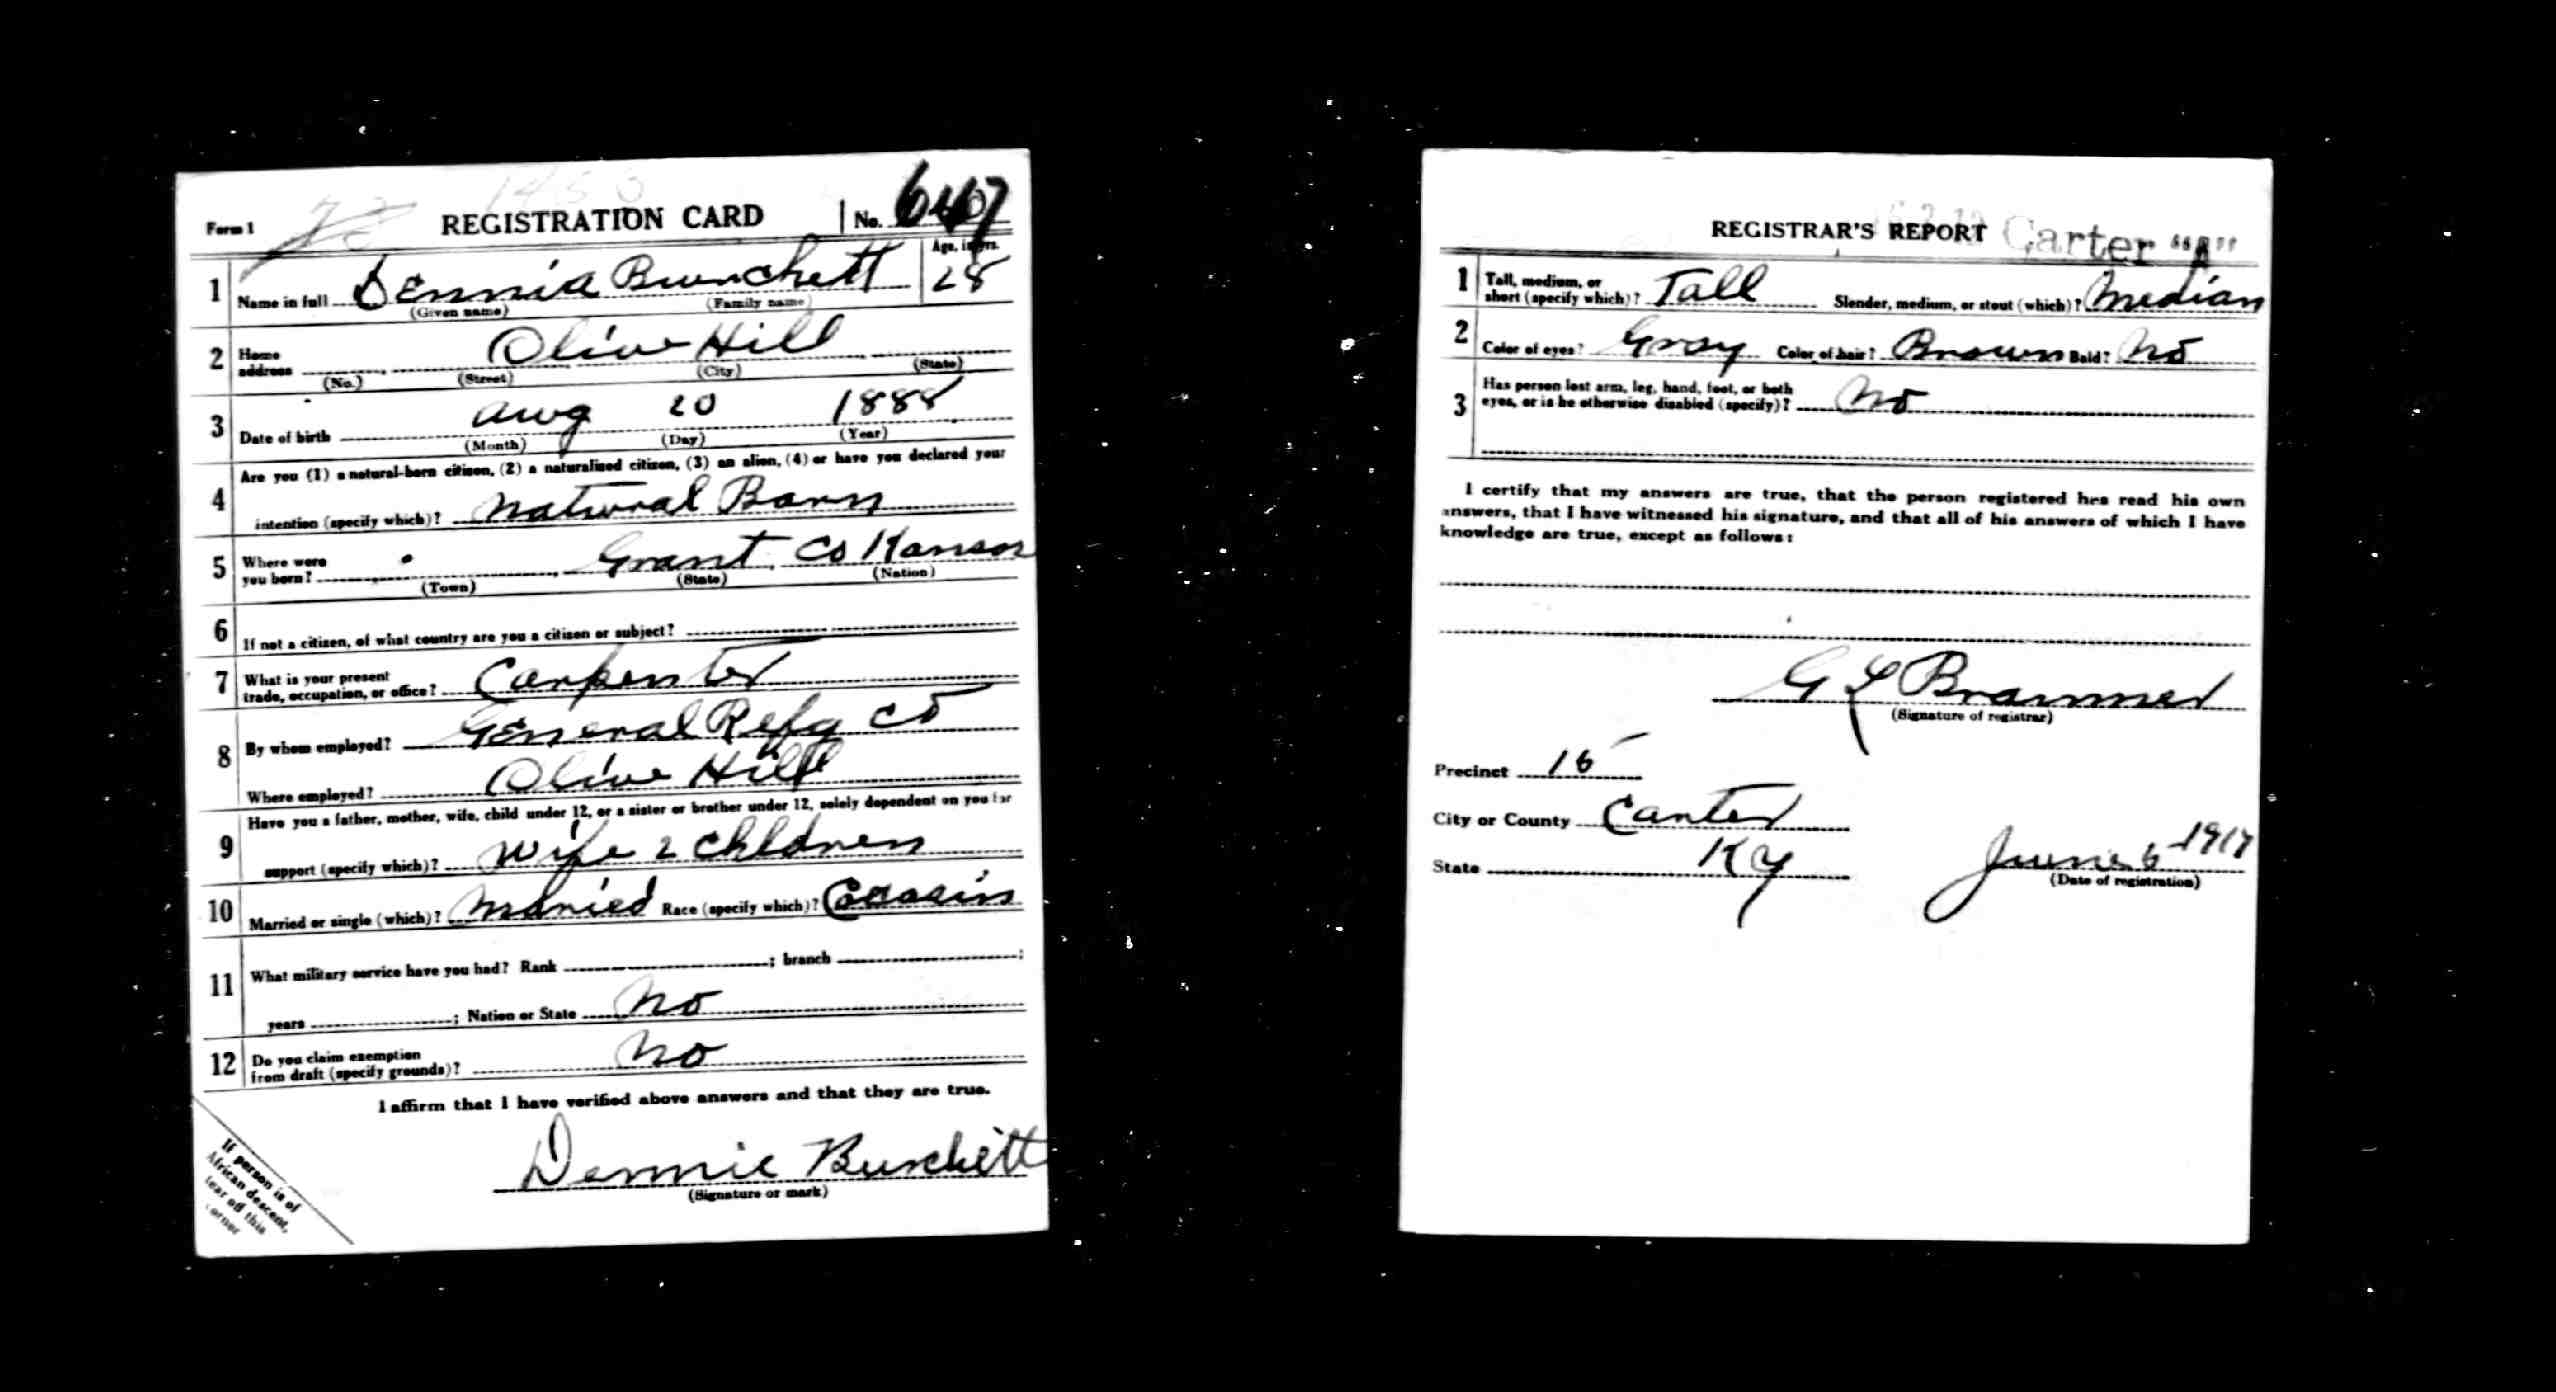 Form 1 REGISTRATION CARD No.
Age, in yrs.
1 Name in full Dennie Burchett 28
(Given name) (Family name)
2 Home address Olive Hill
(No.) (Street) (City) (State)
3 Date of birth Aug 20 1888
(Month) (Day) (Year)
4 Are you (1) a natural-born citizen, (2) a naturalized citizen, (3) an alien, (4) or have you declared your
intention (specify which)? Natural Born
5 Where were you born? Grant Co Kansas
(Town) (State) (Nation)
6 If not a citizen, of what country are you a citizen or subject?
7 What is your present trade, occupation, or office? Carpenter
8 By whom employed? General Refg Co
Where employed? Olive Hill
9 Have you a father, mother, wife, child under 12, or a sister or brother under 12, solely dependent on you for
support (specify which)? Wife 2 Chldren
10 Married or single (which)? Married Race (specify which)?
11 What military service have you had? Rank ; branch ;
years ; Nation or State No
12 Do you claim exemption from draft (specify grounds)? No
I affirm that I have verified above answers and that they are true.
Dennie Burchett
(Signature or mark)
If person is of
African descent,
tear off this
corner
REGISTRAR'S REPORT Carter "A"
1 Tall, medium, or short (specify which)? Tall Slender, medium, or stout (which)? Median
2 Color of eyes? Gray Color of hair? Brown Bald? No
3 Has person lost arm, leg, hand, foot, or both
eyes, or is he otherwise disabled (specify)? No
I certify that my answers are true, that the person registered has read his own
answers, that I have witnessed his signature, and that all of his answers of which I have
knowledge are true, except as follows:
G L Brammer
(Signature of registrar)
Precinct 16
City or County Carter
State Ky June 6 1917
(Date of registration)